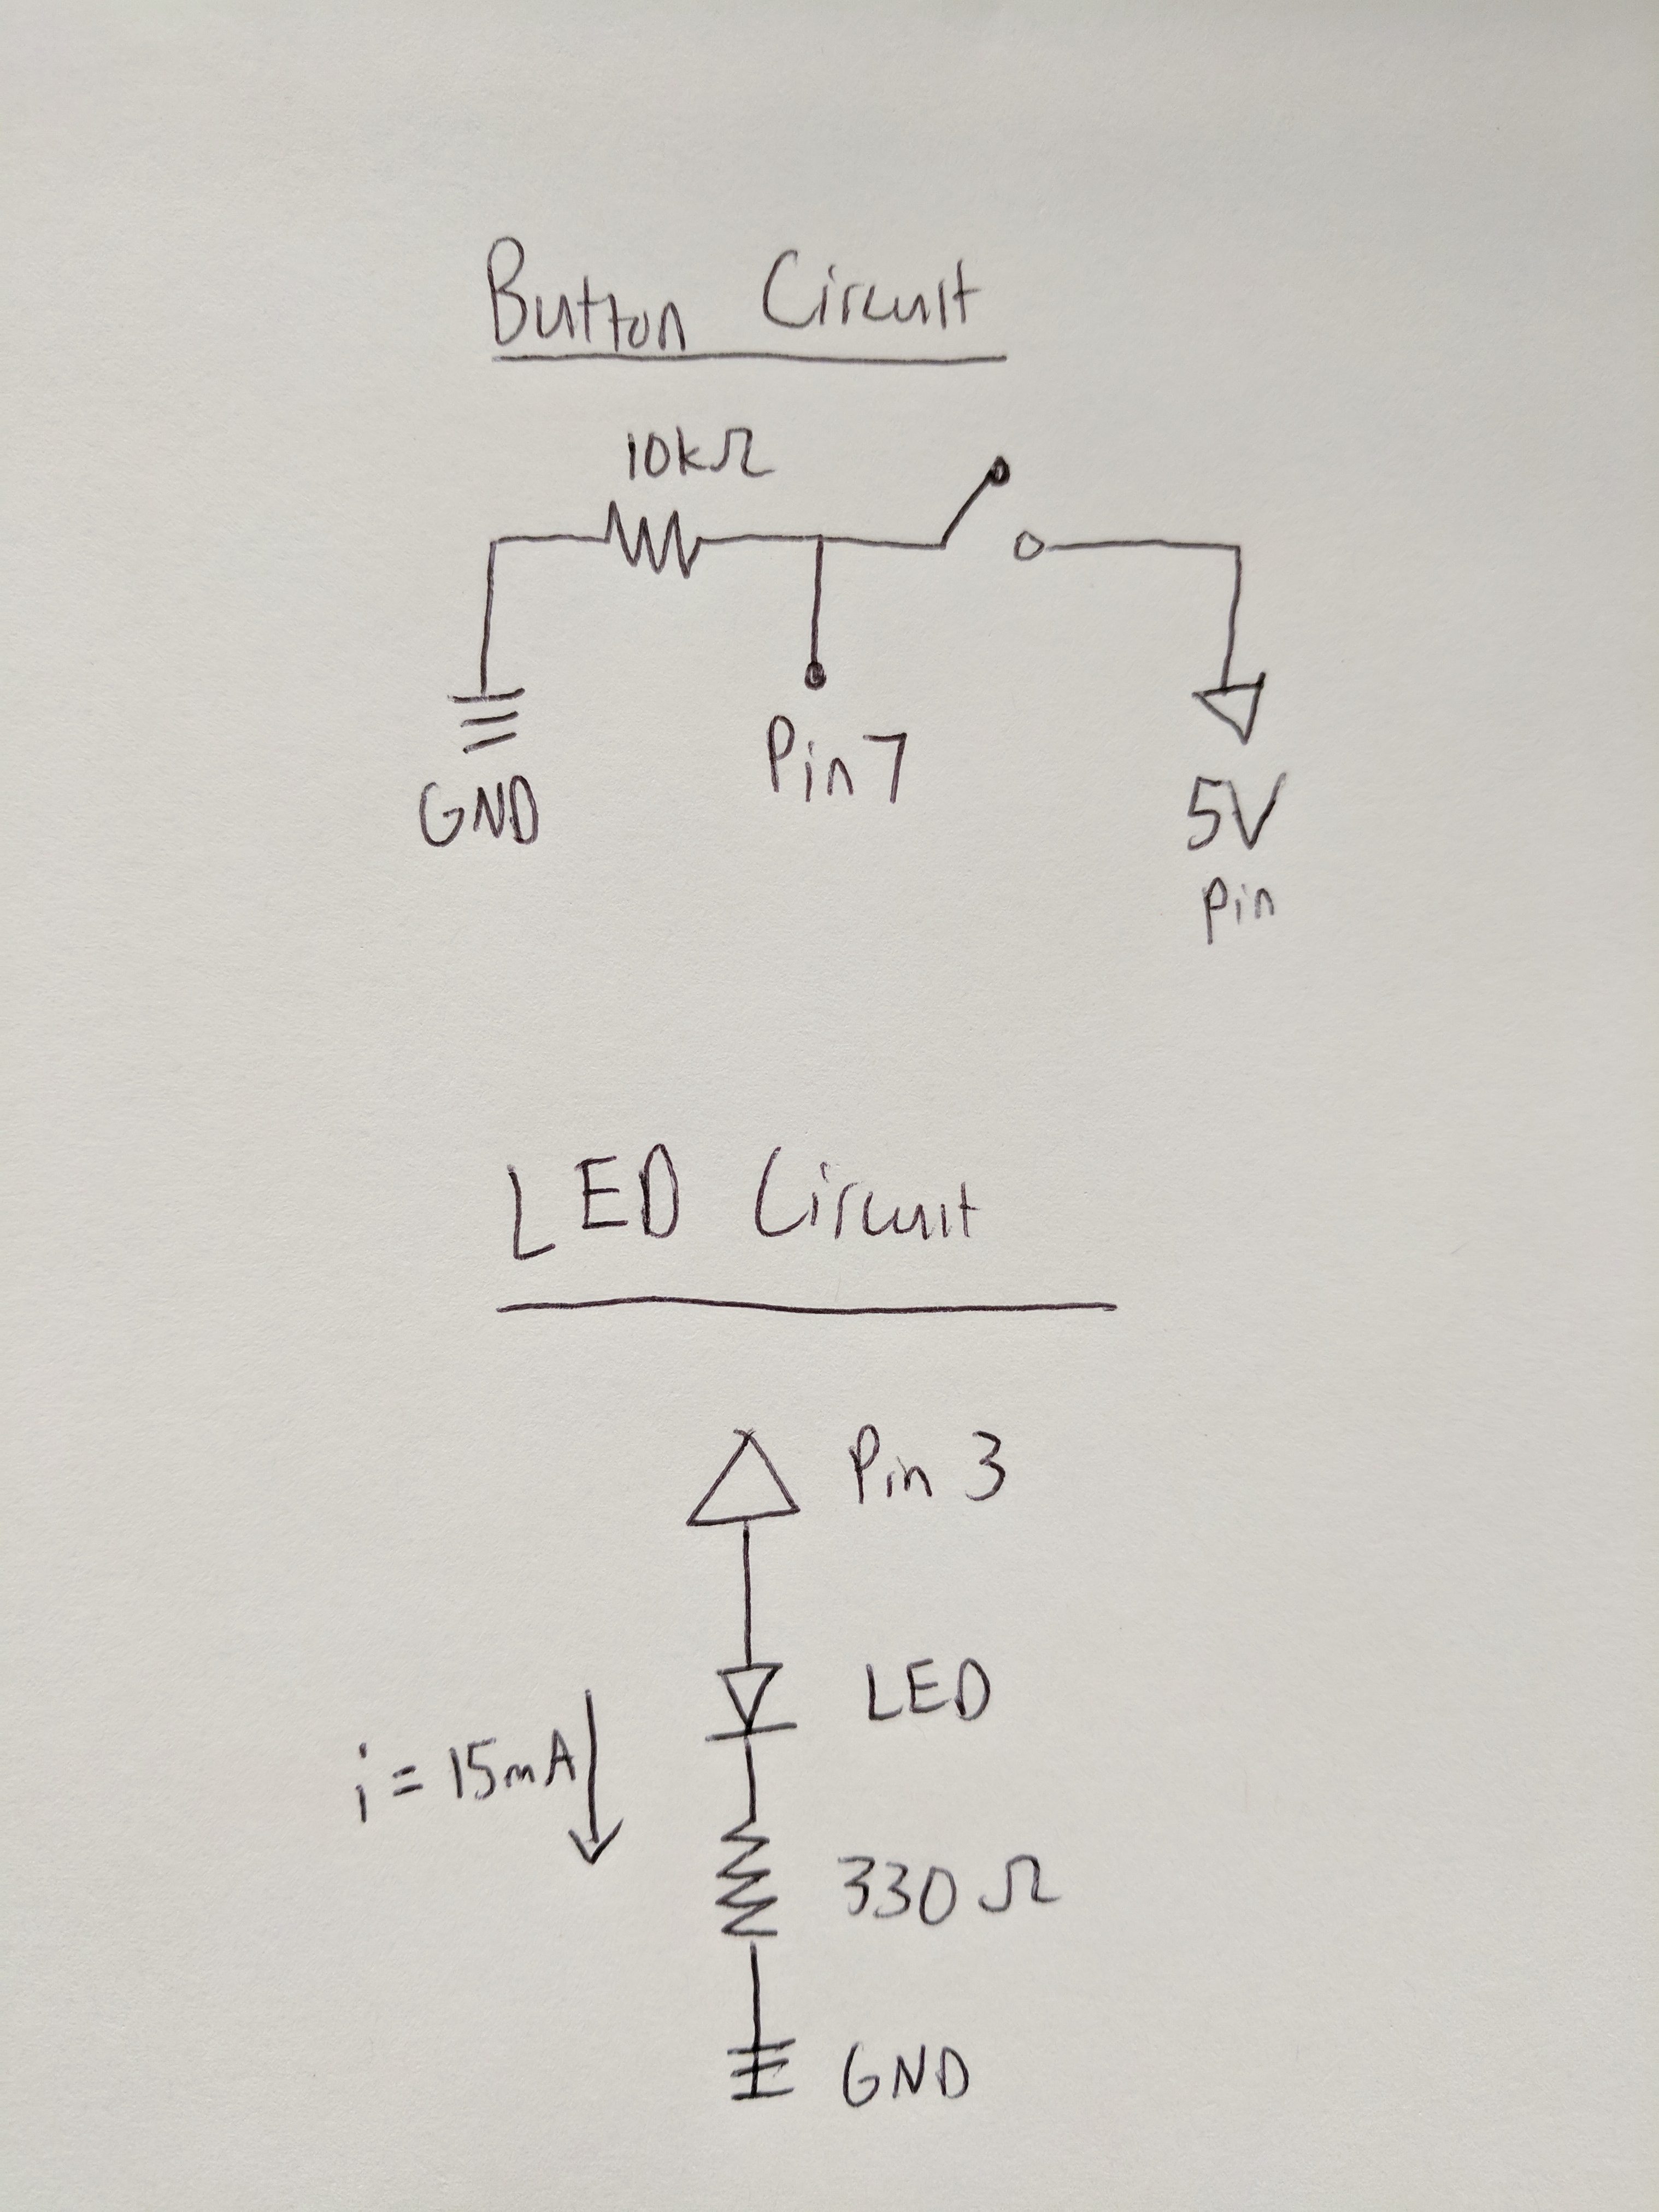 Button Circuit
10kΩ
GND
Pin 7
5V
pin
LED Circuit
Pin 3
LED
i = 15mA
330 Ω
GND